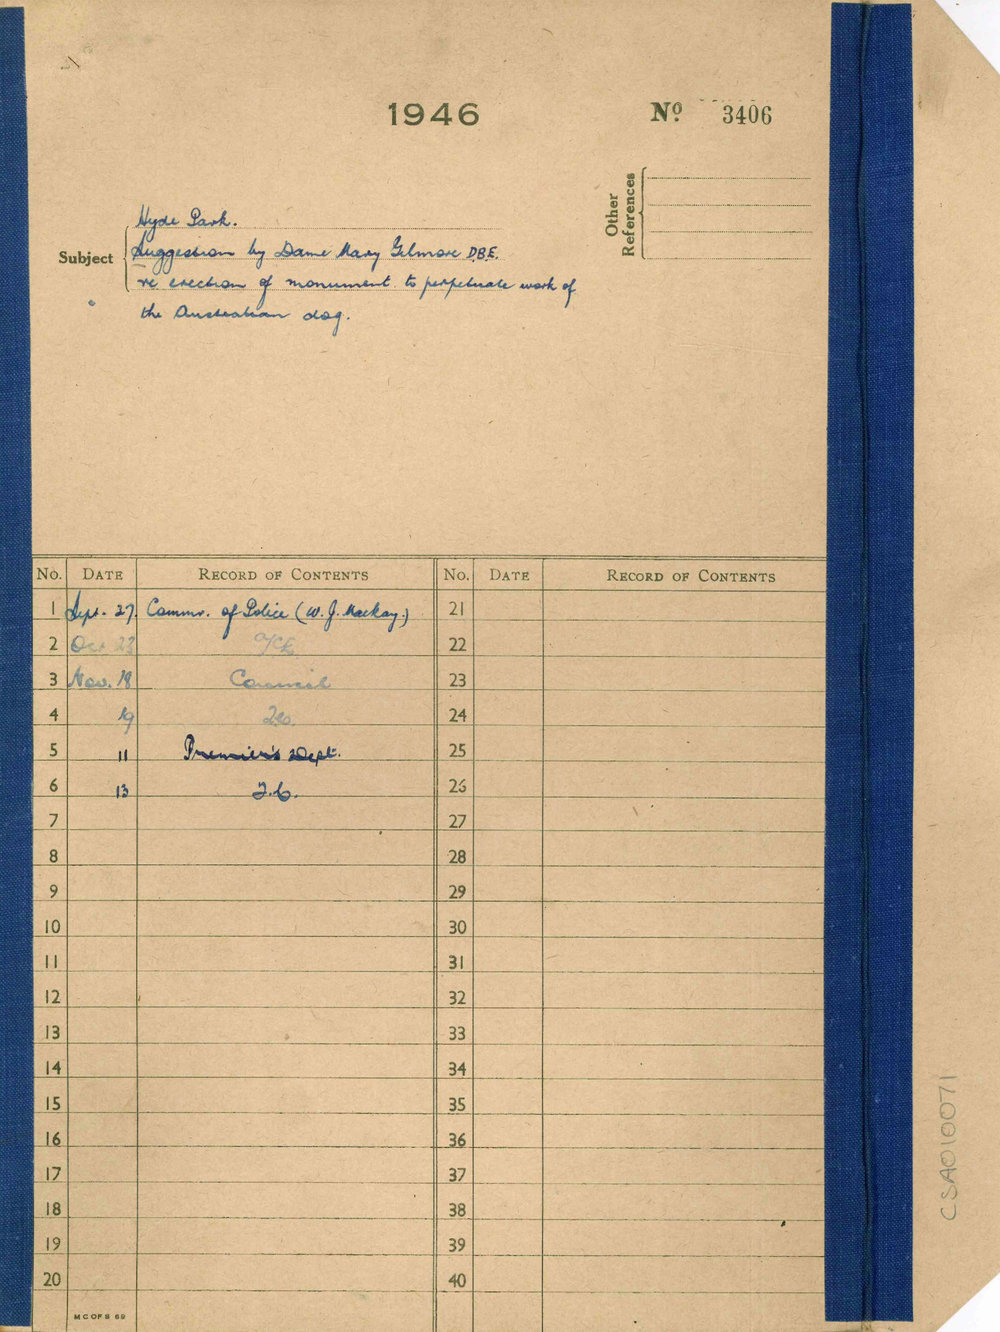 1946
Nº 3406
Other References
Subject
Hyde Park.
Suggestion by Dame Mary Gilmore D.B.E.
re erection of monument to perpetuate work of
the Australian dog.
No. DATE RECORD OF CONTENTS No. DATE RECORD OF CONTENTS
1 Sept. 27. Commr. of Police (W. J. Mackay.) 21
2 Oct 23 22
3 Nov. 18 Council 23
4 19 24
5 11 Premier's Dept. 25
6 13 26
7 27
8 28
9 29
10 30
11 31
12 32
13 33
14 34
15 35
16 36
17 37
18 38
19 39
20 40
M C OF S 69
CSA010071